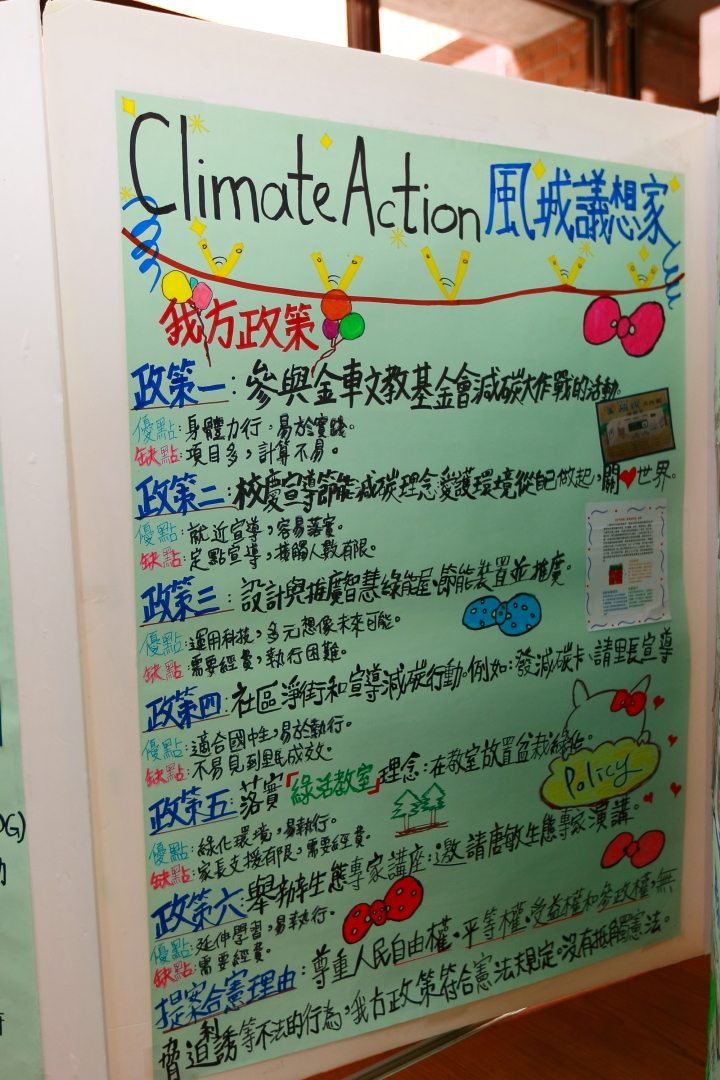 Climate Action 風城議想家
我方政策
政策一：參與金車文教基金會減碳大作戰的活動。
優點：身體力行，易於實踐。
缺點：項目多，計算不易。
政策二：校慶宣導節能減碳理念愛護環境從自己做起，關❤世界。
優點：就近宣導，容易落實。
缺點：定點宣導，接觸人數有限。
政策三：設計與推廣智慧綠能屋、節能裝置並推廣。
優點：運用科技，多元想像未來可能。
缺點：需要經費，執行困難。
政策四：社區淨街和宣導減碳行動。例如：發減碳卡、請里長宣導
優點：適合國中生，易於執行。
缺點：不易見到里民成效。
政策五：落實「綠活教室」理念：在教室放置盆栽綠化。
優點：綠化環境，易執行。
缺點：家長支援有限，需要經費。
Policy
政策六：舉辦生態專家講座：邀請唐敏生態專家演講。
優點：延伸學習，易執行。
缺點：需要經費。
提案合憲理由：尊重人民自由權、平等權、受益權和參政權，無
脅迫利誘等不法的行為，我方政策符合憲法規定。沒有抵觸憲法。